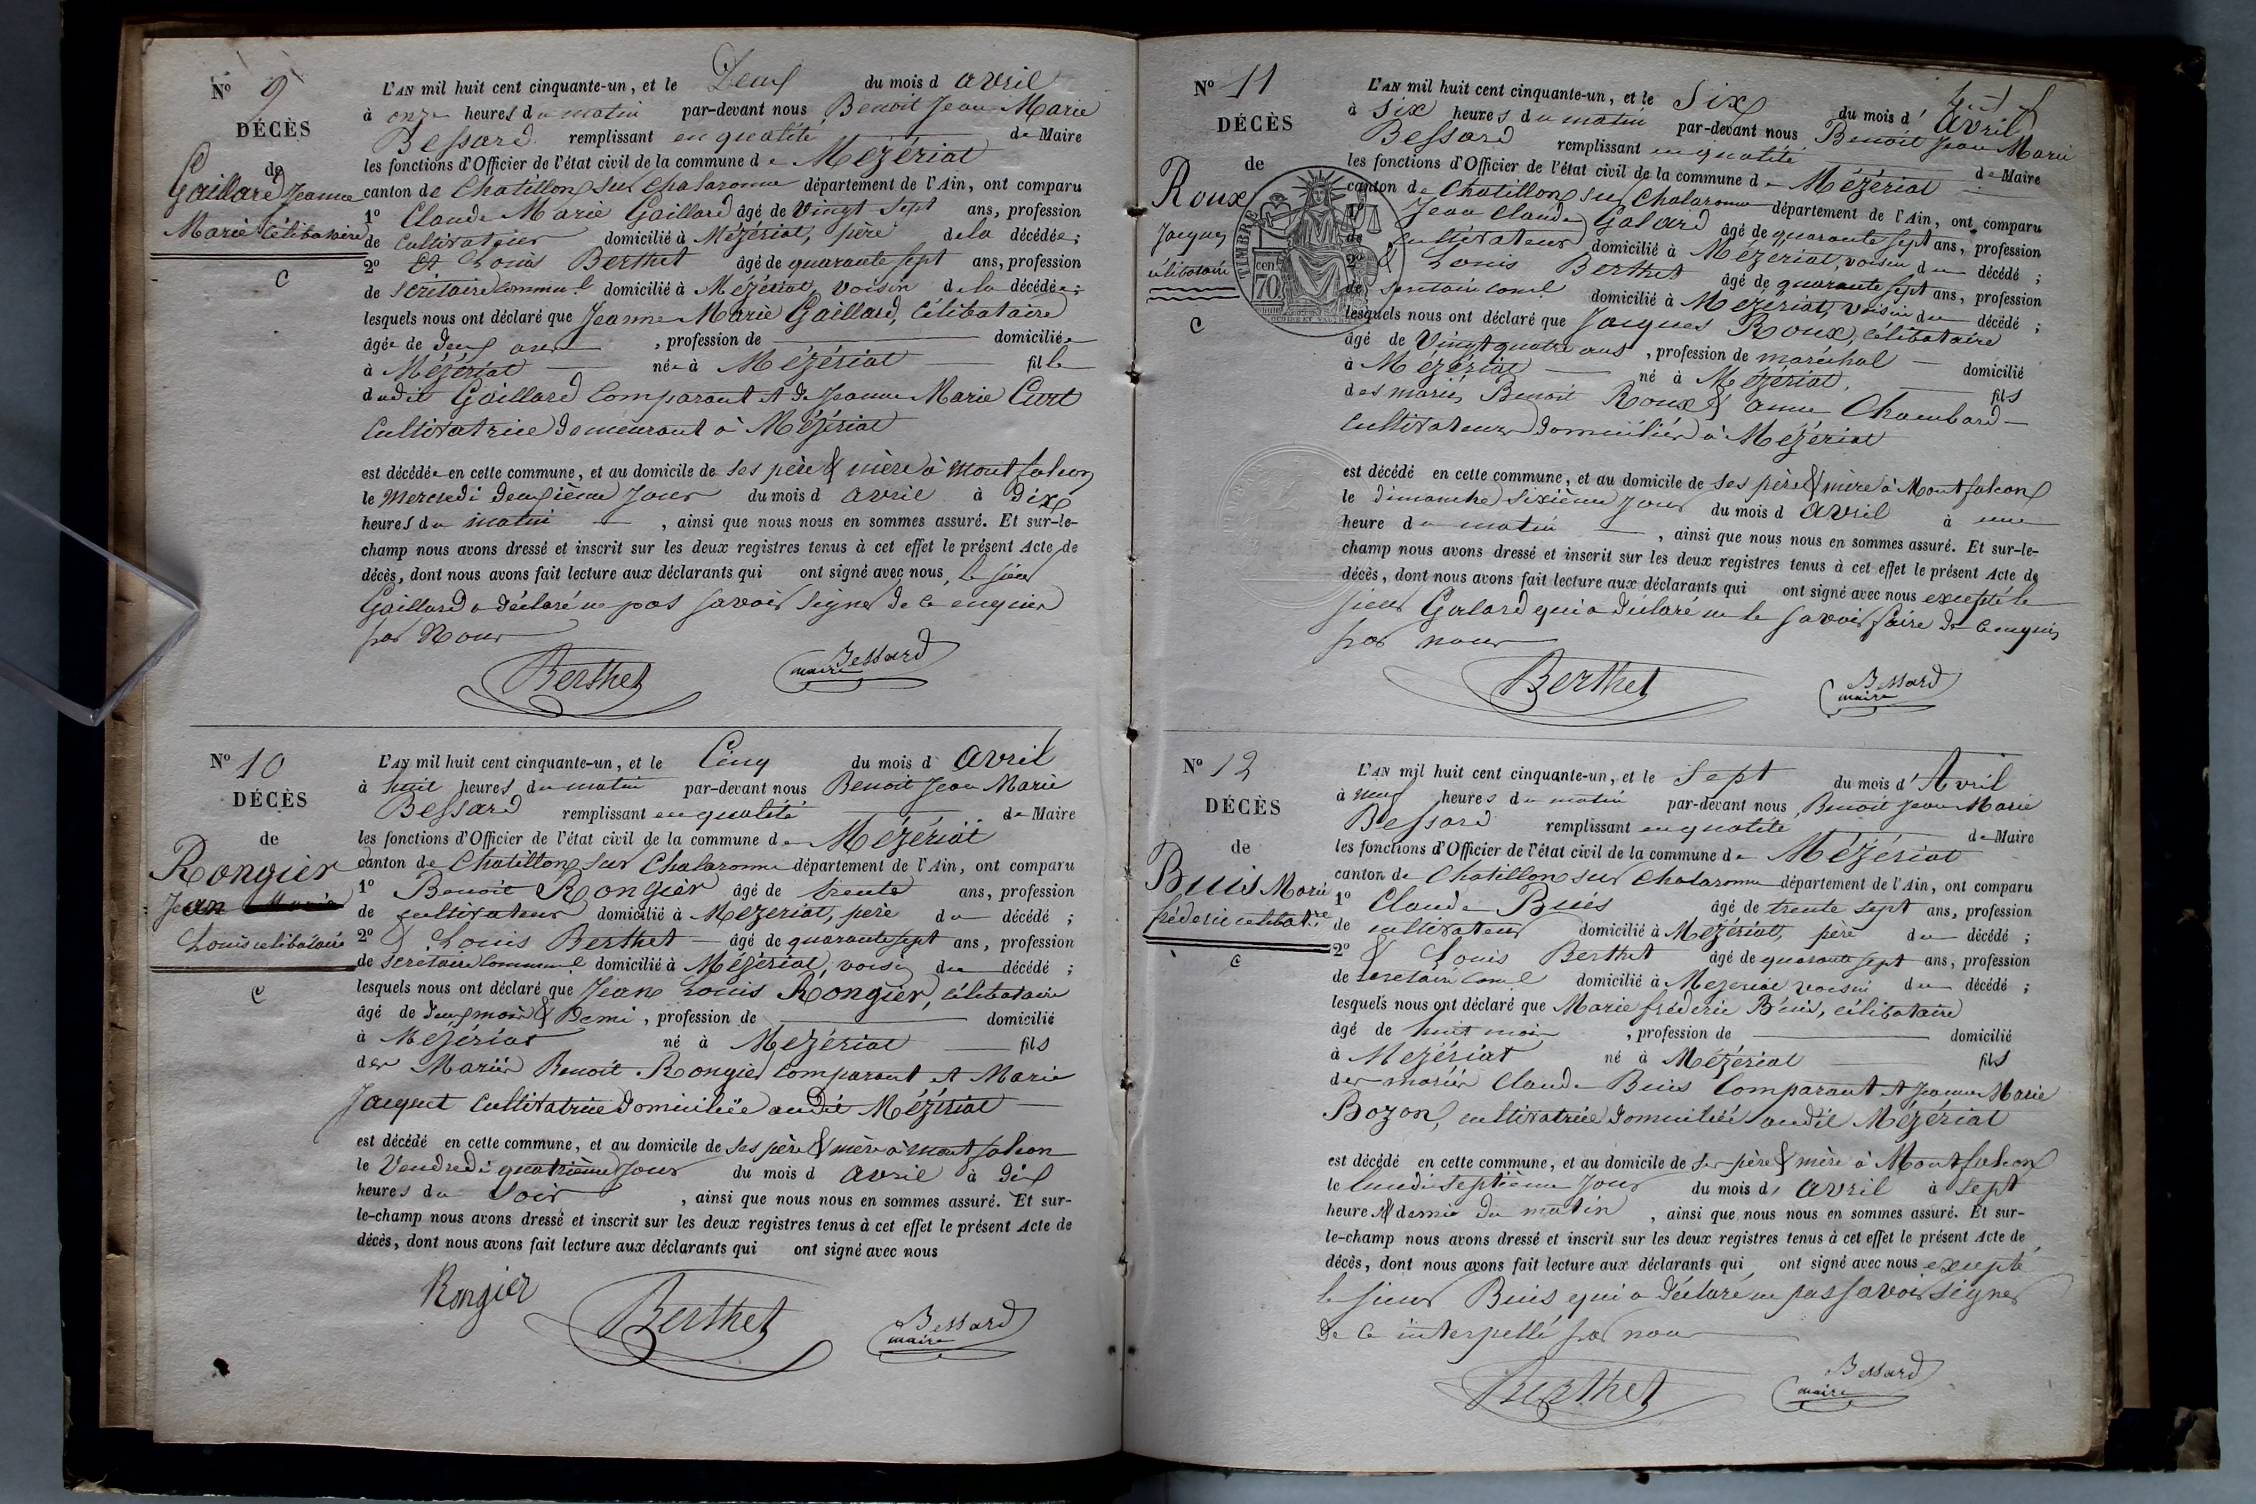 N.º 9
DÉCÈS
de
Gaillard Jeanne
Marie célibataire
C
L'AN mil huit cent cinquante-un, et le Deux du mois d avril
à onze heures du matin par-devant nous Benoit Jean Marie
Bessard remplissant en qualité de Maire
les fonctions d'Officier de l'état civil de la commune de Mézériat
canton de Chatillon sur Chalaronne département de l'Ain, ont comparu
1º Claude Marie Gaillard âgé de vingt sept ans, profession
de cultivateur domicilié à Mézériat, père de la décédée;
2º Et Louis Berthet âgé de quarante sept ans, profession
de secrétaire communal domicilié à Mézériat, voisin de la décédée;
lesquels nous ont déclaré que Jeanne Marie Gaillard, célibataire
âgée de deux ans, profession de domiciliée
à Mézériat née à Mézériat fille
dudit Gaillard comparant et de Jeanne Marie Curt
cultivatrice demeurant à Mézériat
est décédée en cette commune, et au domicile de ses père & mère à Montfalcon
le Mercredi deuxième jour du mois d avril à dix
heures du matin, ainsi que nous nous en sommes assuré. Et sur-le-
champ nous avons dressé et inscrit sur les deux registres tenus à cet effet le présent Acte de
décès, dont nous avons fait lecture aux déclarants qui ont signé avec nous, le sieur
Gaillard a déclaré ne pas savoir signer de ce enquis
par Nous
Berthet
Bessard
maire
N.º 10
DÉCÈS
de
Rongier
Jean Marie
Louis célibataire
C
L'AN mil huit cent cinquante-un, et le Cinq du mois d avril
à huit heures du matin par-devant nous Benoit Jean Marie
Bessard remplissant en qualité de Maire
les fonctions d'Officier de l'état civil de la commune de Mézériat
canton de Chatillon sur Chalaronne département de l'Ain, ont comparu
1º Benoit Rongier âgé de trente ans, profession
de cultivateur domicilié à Mézériat, père du décédé;
2º & Louis Berthet âgé de quarante sept ans, profession
de secrétaire communal domicilié à Mézériat, voisin du décédé;
lesquels nous ont déclaré que Jean Louis Rongier, célibataire
âgé de deux mois & Demi, profession de domicilié
à Mézériat né à Mézériat fils
des Mariés Benoit Rongier comparant et Marie
Jacquet cultivatrice domiciliée audit Mézériat
est décédé en cette commune, et au domicile de ses père & mère à Montfalcon
le Vendredi quatrième jour du mois d avril à dix
heures du soir, ainsi que nous nous en sommes assuré. Et sur-
le-champ nous avons dressé et inscrit sur les deux registres tenus à cet effet le présent Acte de
décès, dont nous avons fait lecture aux déclarants qui ont signé avec nous
Rongier
Berthet
Bessard
maire
N.º 11
DÉCÈS
de
Roux
Jacques
célibataire
C
TIMBRE
70 cen.
L'AN mil huit cent cinquante-un, et le Six du mois d' avril
à six heures du matin par-devant nous Benoit Jean Marie
Bessard remplissant en qualité de Maire
les fonctions d'Officier de l'état civil de la commune de Mézériat
canton de Chatillon sur Chalaronne département de l'Ain, ont comparu
1º Jean Claude Galard âgé de quarante sept ans, profession
de cultivateur domicilié à Mézériat, voisin du décédé;
2º & Louis Berthet âgé de quarante sept ans, profession
de secrétaire coml domicilié à Mézériat, voisin du décédé;
lesquels nous ont déclaré que Jacques Roux, célibataire
âgé de Vingt quatre ans, profession de maréchal domicilié
à Mézériat né à Mézériat, fils
des mariés Benoit Roux & anne Chambard
cultivateurs domiciliés à Mézériat
est décédé en cette commune, et au domicile de ses père & mère à Montfalcon
le dimanche sixième jour du mois d avril à une
heure du matin, ainsi que nous nous en sommes assuré. Et sur-le-
champ nous avons dressé et inscrit sur les deux registres tenus à cet effet le présent Acte de
décès, dont nous avons fait lecture aux déclarants qui ont signé avec nous excepté le
sieur Galard qui a déclaré ne le savoir faire de ce enquis
par nous
Berthet
Bessard
maire
N.º 12
DÉCÈS
de
Buis Marie
fréderic célibatre
C
L'AN mil huit cent cinquante-un, et le Sept du mois d' Avril
à neuf heures du matin par-devant nous, Benoit Jean Marie
Bessard remplissant en qualité de Maire
les fonctions d'Officier de l'état civil de la commune de Mézériat
canton de Chatillon sur Chalaronne département de l'Ain, ont comparu
1º Claude Buis âgé de trente sept ans, profession
de cultivateur domicilié à Mézériat, père du décédé;
2º & Louis Berthet âgé de quarante sept ans, profession
de secrétaire coml domicilié à Mézériat voisin du décédé;
lesquels nous ont déclaré que Marie fréderic Buis, célibataire
âgé de huit mois, profession de domicilié
à Mézériat né à Mézériat fils
des mariés Claude Buis comparant et Jeanne Marie
Bozon, cultivatrice domiciliée audit Mézériat
est décédé en cette commune, et au domicile de ses père & mère à Montfalcon
le lundi septième jour du mois d' avril à sept
heure & demie du matin, ainsi que nous nous en sommes assuré. Et sur-
le-champ nous avons dressé et inscrit sur les deux registres tenus à cet effet le présent Acte de
décès, dont nous avons fait lecture aux déclarants qui ont signé avec nous excepté
le sieur Buis qui a déclaré ne pas savoir signer
de ce interpellé par nous
Berthet
Bessard
maire